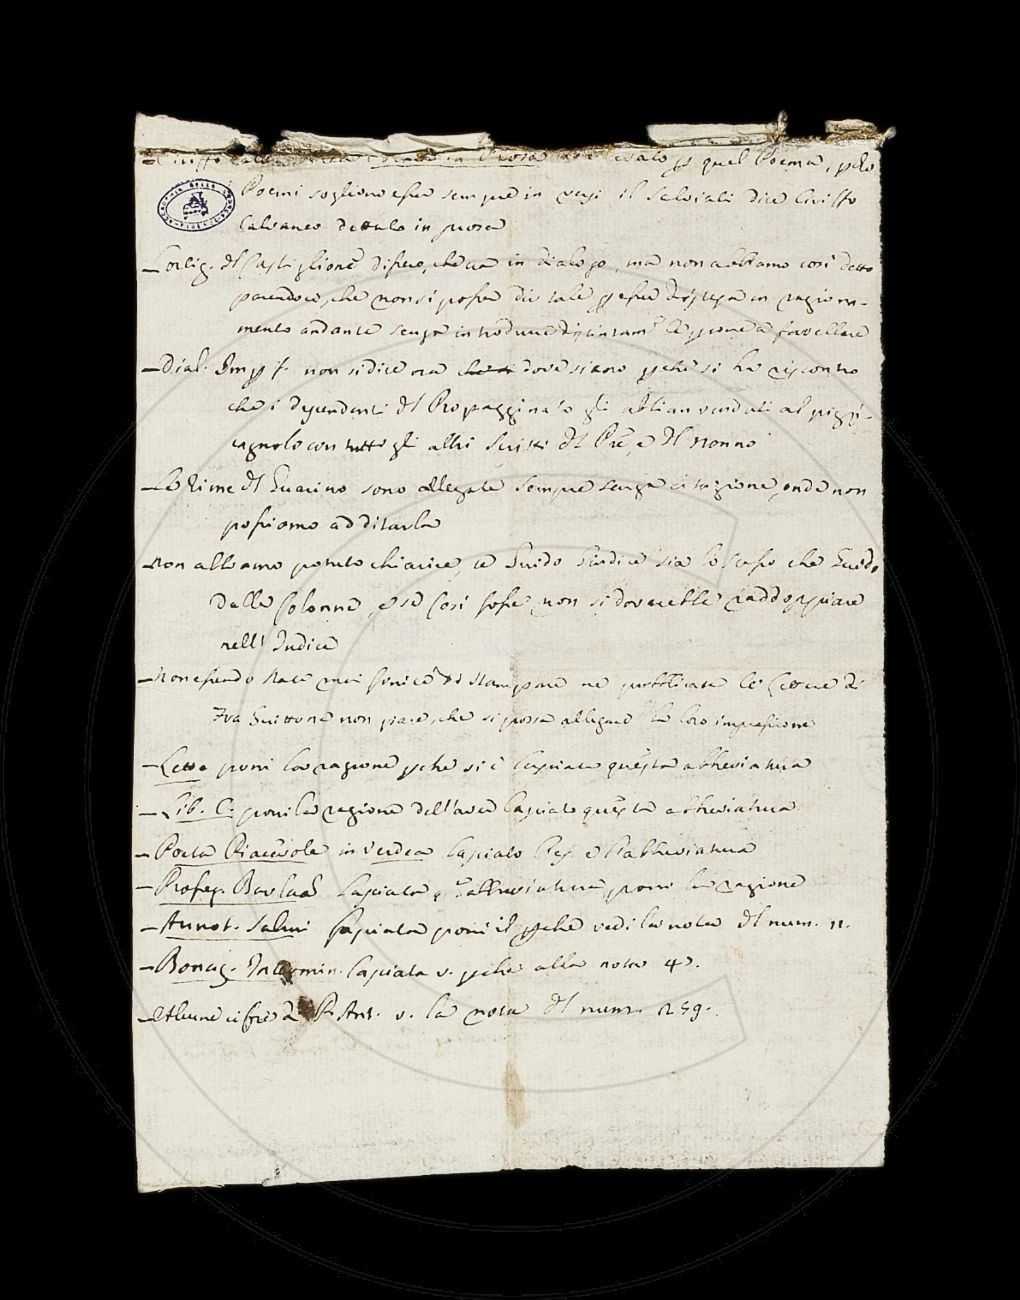 quel Poema, p che
Poemi sogliono esser sempre in versi il Salviati dice Ciriffo
Calvaneo dettato in prosa
Cortig. del Castiglione diseso, che era in dialogo, ma non abbiamo così detto
parendoci, che non si possa dir tale p esser distesa in ragiona-
mento andante senza introdurre distintam.e le psone a favellare
Dial. Imp f. non si dice ora dove siano pche si ha riscontro
che i descendenti del Propagginato gli abbian venduti al pizzi-
cagnolo con tutti gli altri scritti del Pre, e del nonno
Le Rime del Guarino sono allegate sempre senza citazione, onde non
possiamo additarla
Non abbiamo potuto chiarire, se Guido Giudice sia lo stesso che Guido
dalle Colonne, e se così fosse, non si dovrebbe raddoppiare
nell' Indice
Non essendo state mai finite di stampare ne pubblicate le Lettere di
Fra Guittone non pare, che si possa allegare la loro impressione
Lett. poni la ragione pche si è lasciata questa abbreviatura
Lib. C. poni la ragione dell'aver lasciato questa abbreviatura
lasciato
lasciata q.a abbreviatura, poni la ragione
Annot. Salvini lasciata poni il pche vedi la nota del num. 11.
lasciata v. pche alla nota 43.
Alcune cifre v. la nota del num. 259.